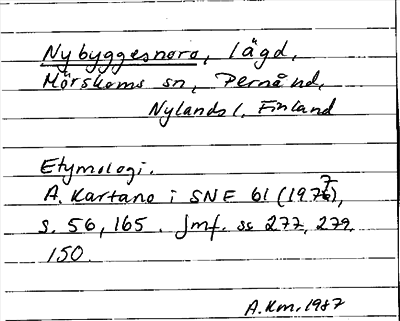 Nybyggesnora, lägd,
Mörskoms sn, Pernå hd,
Nylands l, Finland
Etymologi.
A. Kartano i SNE 61 (1977),
s. 56, 165. Jmf. ss 277, 279.
150.
A.Km. 1987